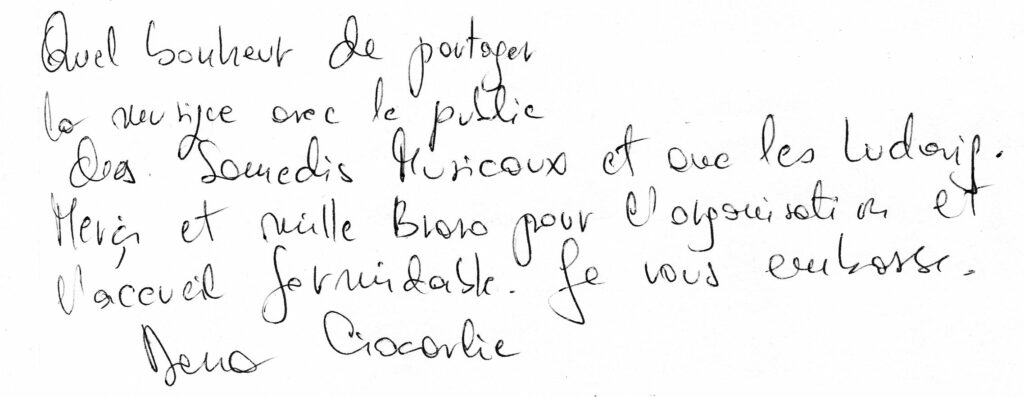 Quel bonheur de partager
la musique avec le public
des Samedis Musicaux et avec les Ludwig.
Merci et mille Bravo pour l'organisation et
l'accueil formidable. Je vous embrasse.
Dana Ciocarlie